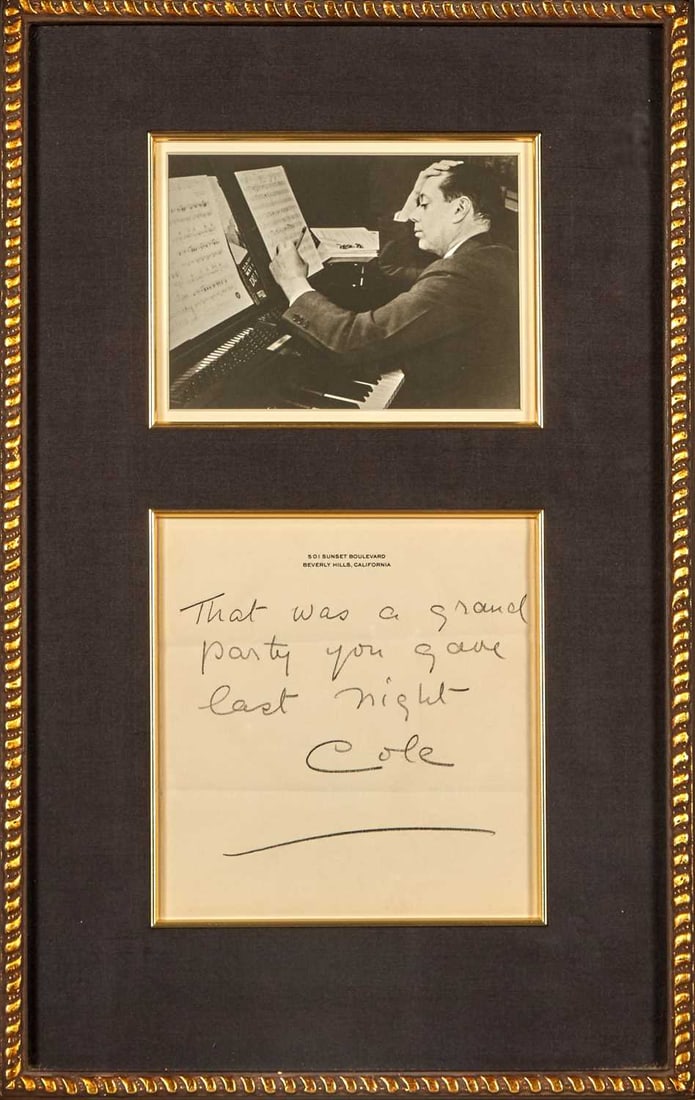 501 SUNSET BOULEVARD
BEVERLY HILLS, CALIFORNIA
That was a grand
party you gave
last night
Cole